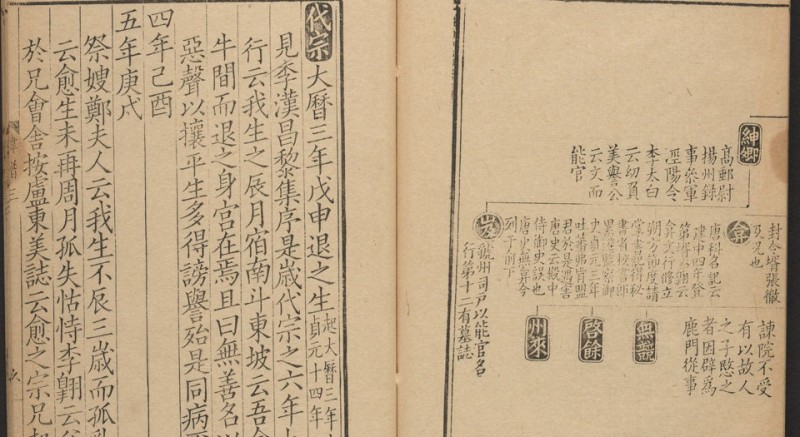 諫院不受
有以故人
之子愍之
者因辟為
鹿門從事
封令壻張徹
及兄也
弇
唐科名記云
建中四年登
第
弇文行脩立
朔方節度請
掌書記得秘
書省校書郎
累遷監察御
史貞元三年
吐蕃弗肯盟
君於是遇害
唐史云殿中
侍御史誤也
唐史無弇今
列于前下
無競
啓餘
州來
岌
虢州司戸以能官名
行第十二有墓誌
紳卿
高郵尉
揚州錄
事參軍
涇陽令
李太白
云幼負
美譽公
云文而
能官
代宗
大曆三年戊申退之生
起大曆三年
自元十四年
見李漢昌黎集序是歲代宗之六年
行云我生之辰月宿南斗東坡云吾
牛間而退之身宮在焉且曰無善名
惡聲以攘平生多得謗譽殆是同病
四年己酉
五年庚戌
祭嫂鄭夫人云我生不辰三歲而孤
云愈生未再周月孤失怙恃李翺云
於兄會舍按盧東美誌云愈之宗兄